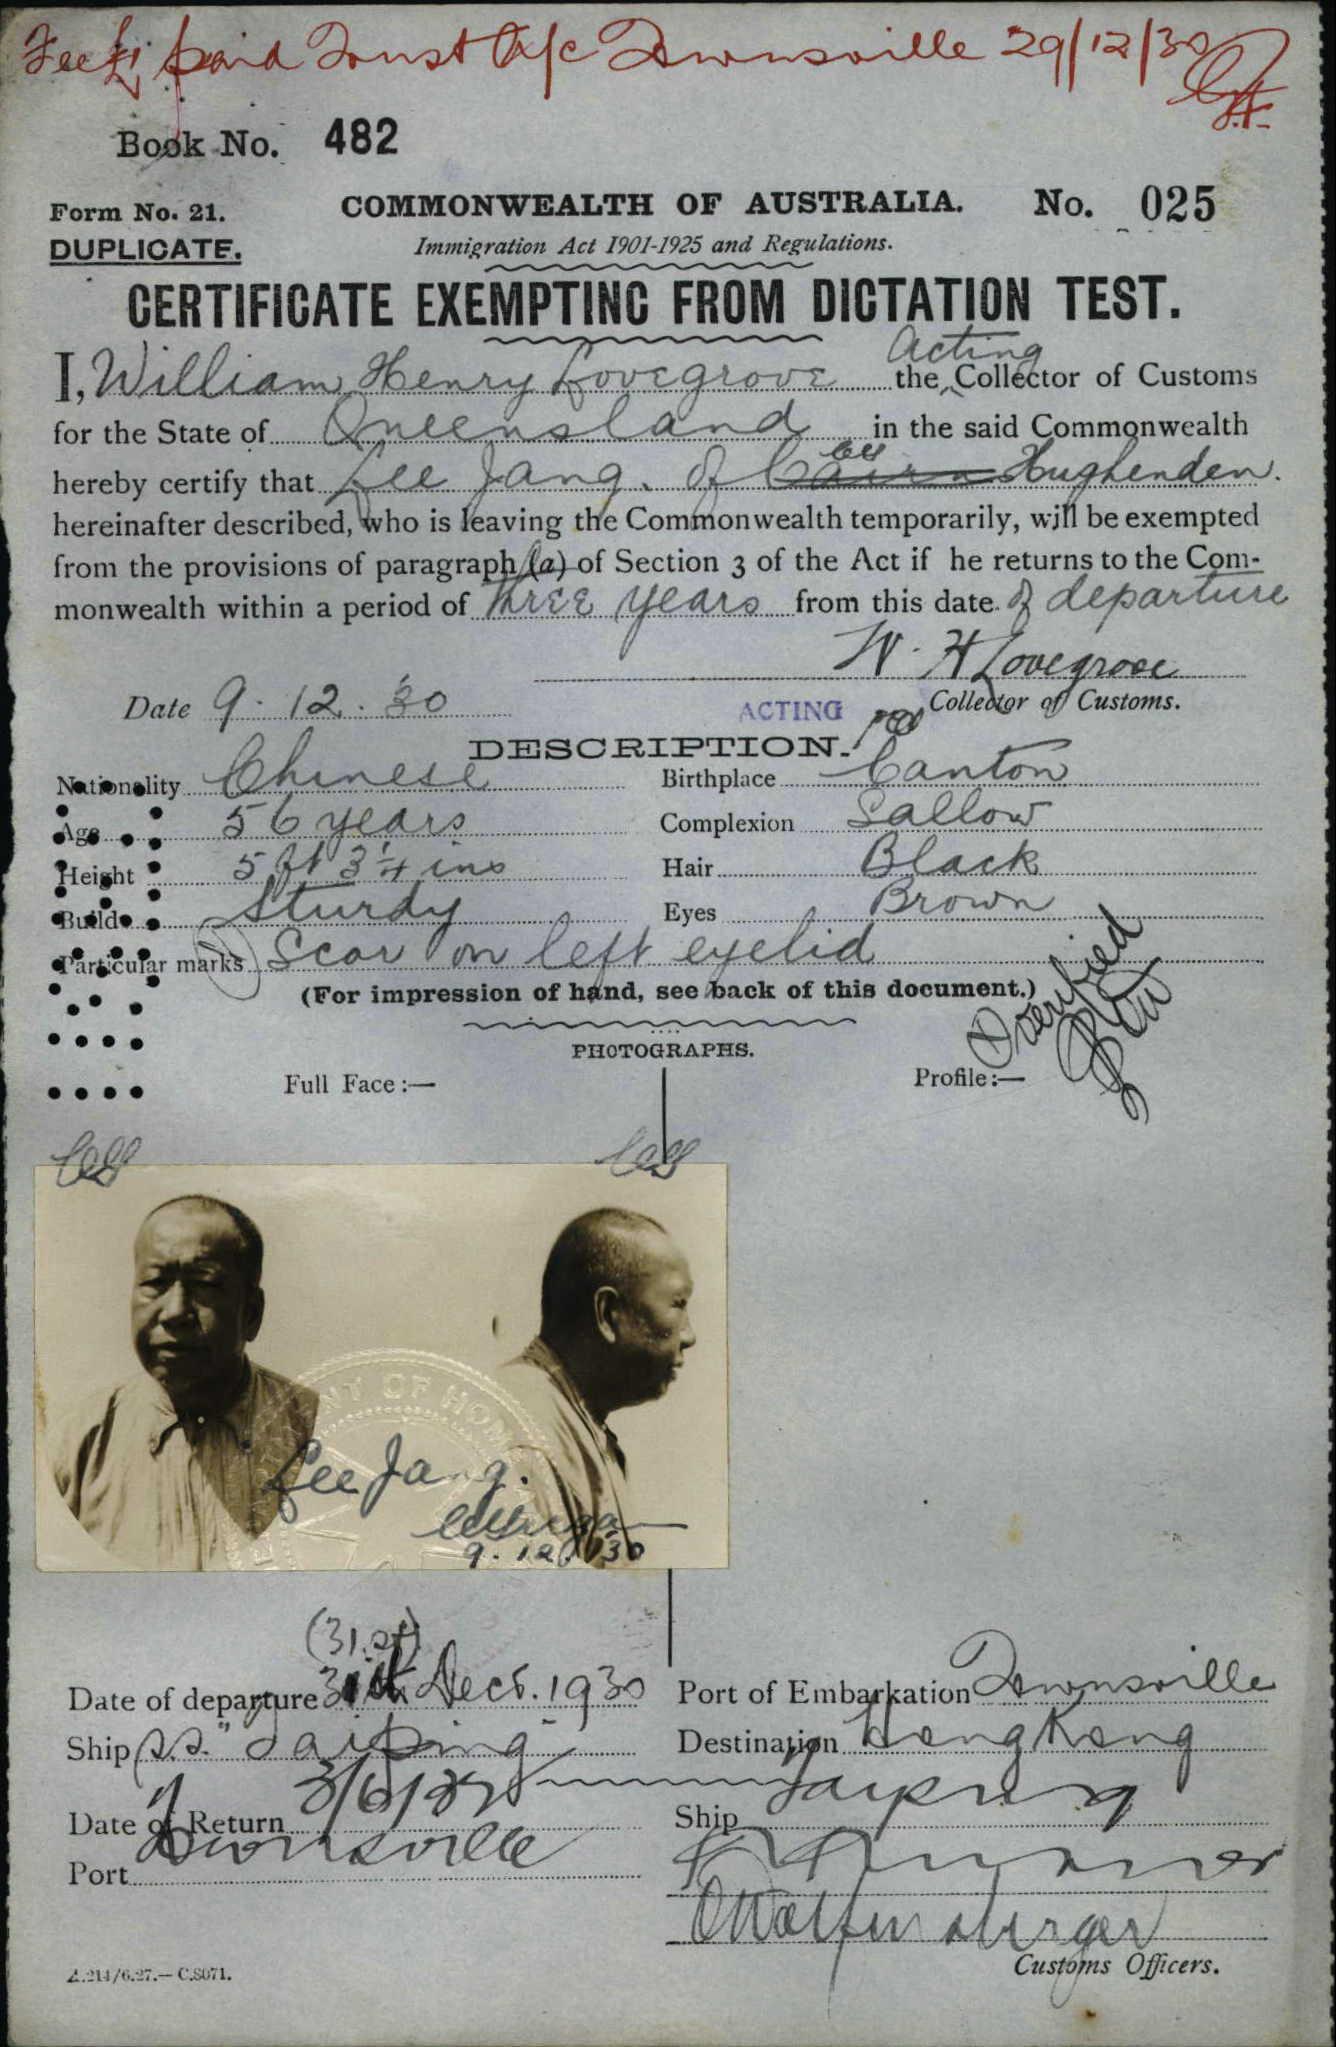 Fee £1 paid Trust A/c Townsville 29/12/30
Book No. 482
Form No. 21. COMMONWEALTH OF AUSTRALIA. No. 025
DUPLICATE. Immigration Act 1901-1925 and Regulations.
CERTIFICATE EXEMPTING FROM DICTATION TEST.
Acting
I, William Henry Lovegrove the Collector of Customs
for the State of Queensland in the said Commonwealth
hereby certify that Lee Jang. of Cairns Hughenden.
hereinafter described, who is leaving the Commonwealth temporarily, will be exempted
from the provisions of paragraph (a) of Section 3 of the Act if he returns to the Com-
monwealth within a period of three years from this date of departure
W. H Lovegrove
Date 9.12.30 ACTING Collector of Customs.
DESCRIPTION.
Nationality Chinese Birthplace Canton
Age 56 years Complexion Sallow
Height 5 ft 3 1/4 ins Hair Black
Build Sturdy Eyes Brown
Particular marks Scar on left eyelid
(For impression of hand, see back of this document.)
verified
PHOTOGRAPHS.
Full Face:— Profile:—
NT OF HOM
Lee Jang.
9.12.30
(31.st)
Date of departure 31st Decr. 1930 Port of Embarkation Townsville
Ship s.s. "Taiping" Destination Hong Kong
Date of Return Ship Taiping
Port Townsville
Customs Officers.
A.214/6.27.—C.8071.